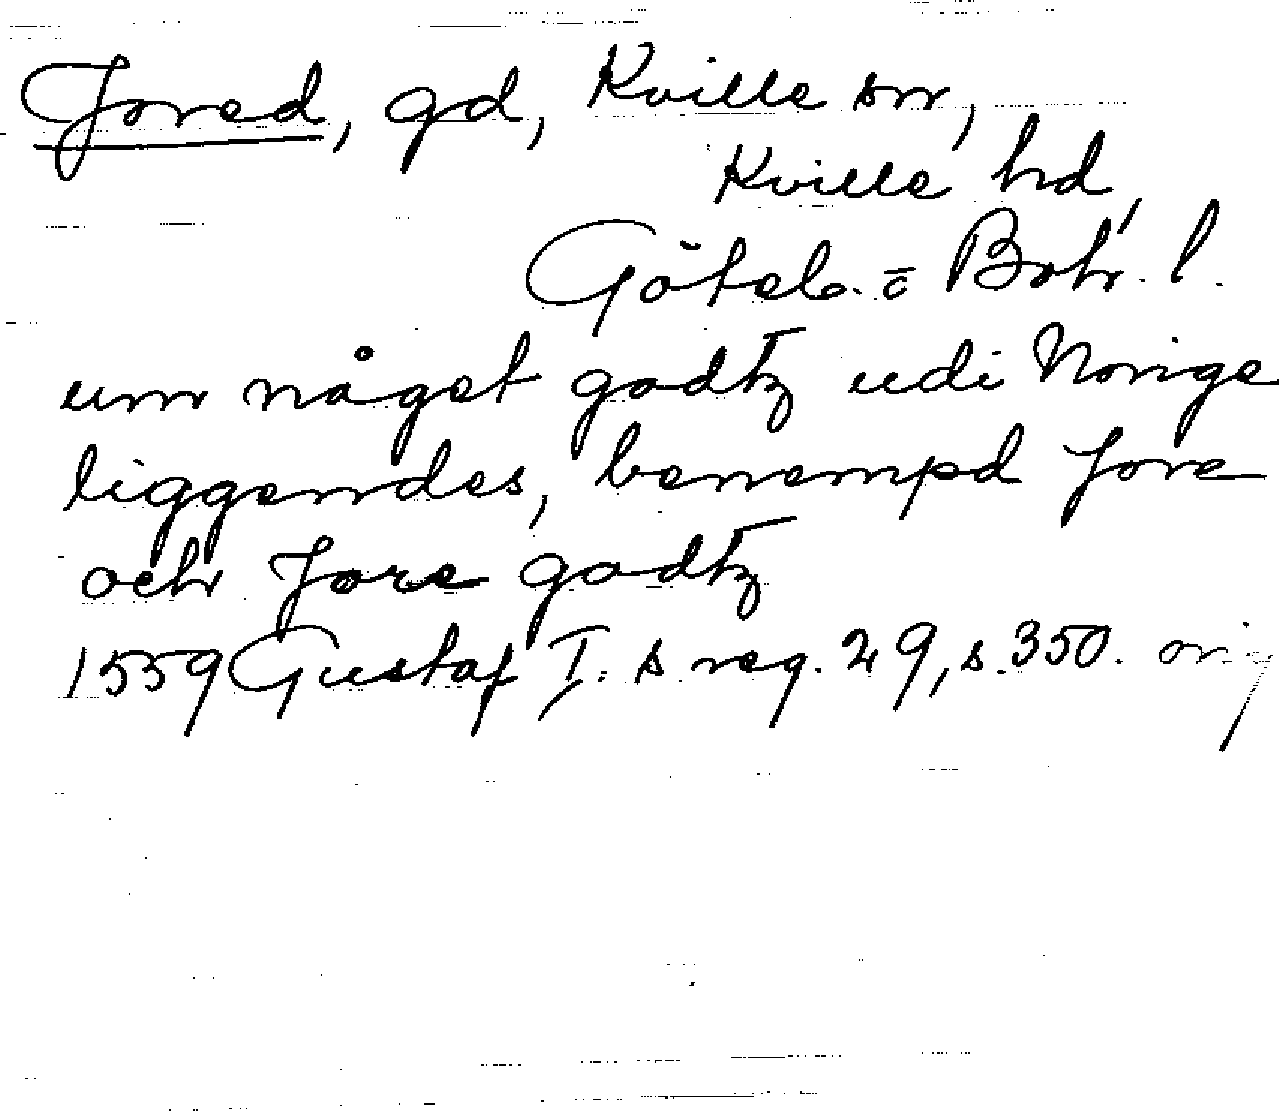 Jored, gd, Kville sn,
Kville hd,
Göteb. o Boh. l.
um något godtz udi Norige
liggendes, benempd Jore
och Jore godtz
1559 Gustaf I:s reg. 29, s. 350. orig